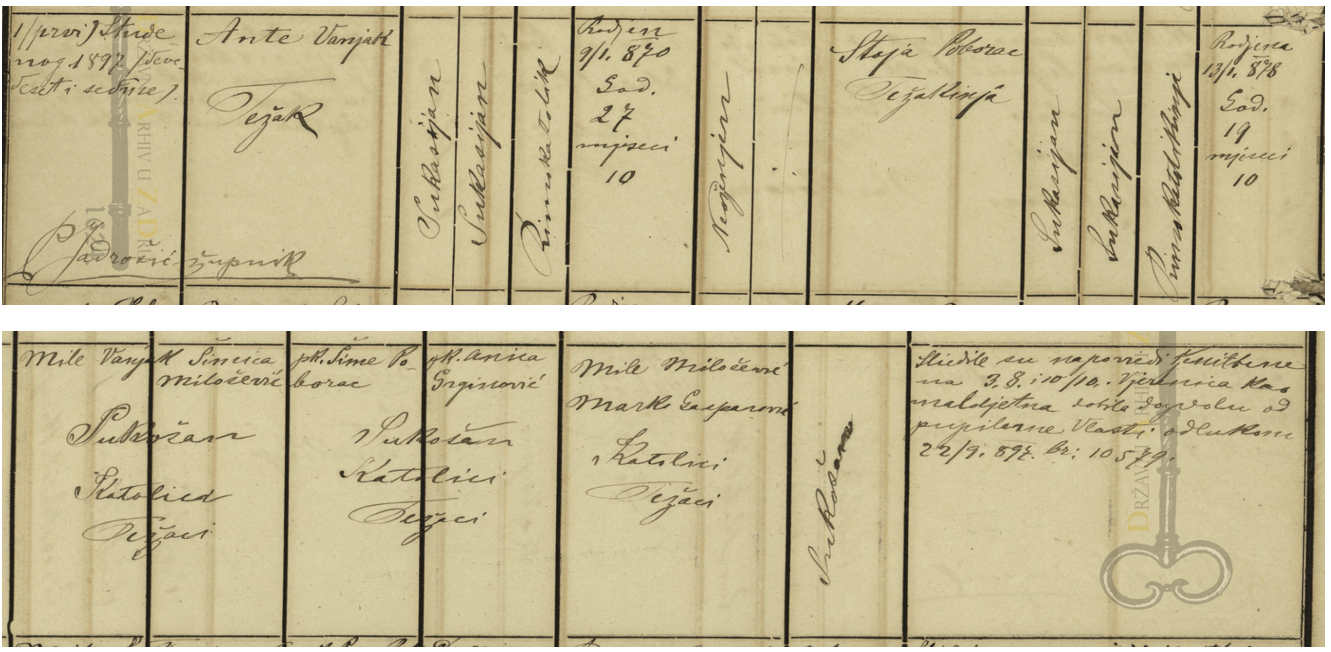 1/prvi) Stude-
nog 1897 (deve-
deset i sedme).
P. Jadrošić župnik
Ante Vanjak
Težak
Sukošjan
Sukošjan
Rimokatolik
Rodjen
9/1. 870
God.
27
mjeseci
10
Neoženjen
Stoja Poborac
Težakinja
Sukošjan
Sukošjan
Rimokatolikinja
Rodjena
13/1. 878
God.
19
mjeseci
10
Mile Vanjak
Šimica
Miloševič
Sukošan
Katolici
Težaci
pk. Šime Po-
borac
pk. Anica
Grginović
Sukošan
Katolici
Težaci
Mile Miloševič
Marko Gasparović
Katolici
Težaci
Sukošan
Sliedile su napovedi ženitbene
na 3. 8. i 10/10. Vjerenica kao
maldjetna dobila dozvolu od
pupilarne Vlasti odlukom
22/9. 897. br: 10579.
ARHIV U ZADRU
DRŽAV